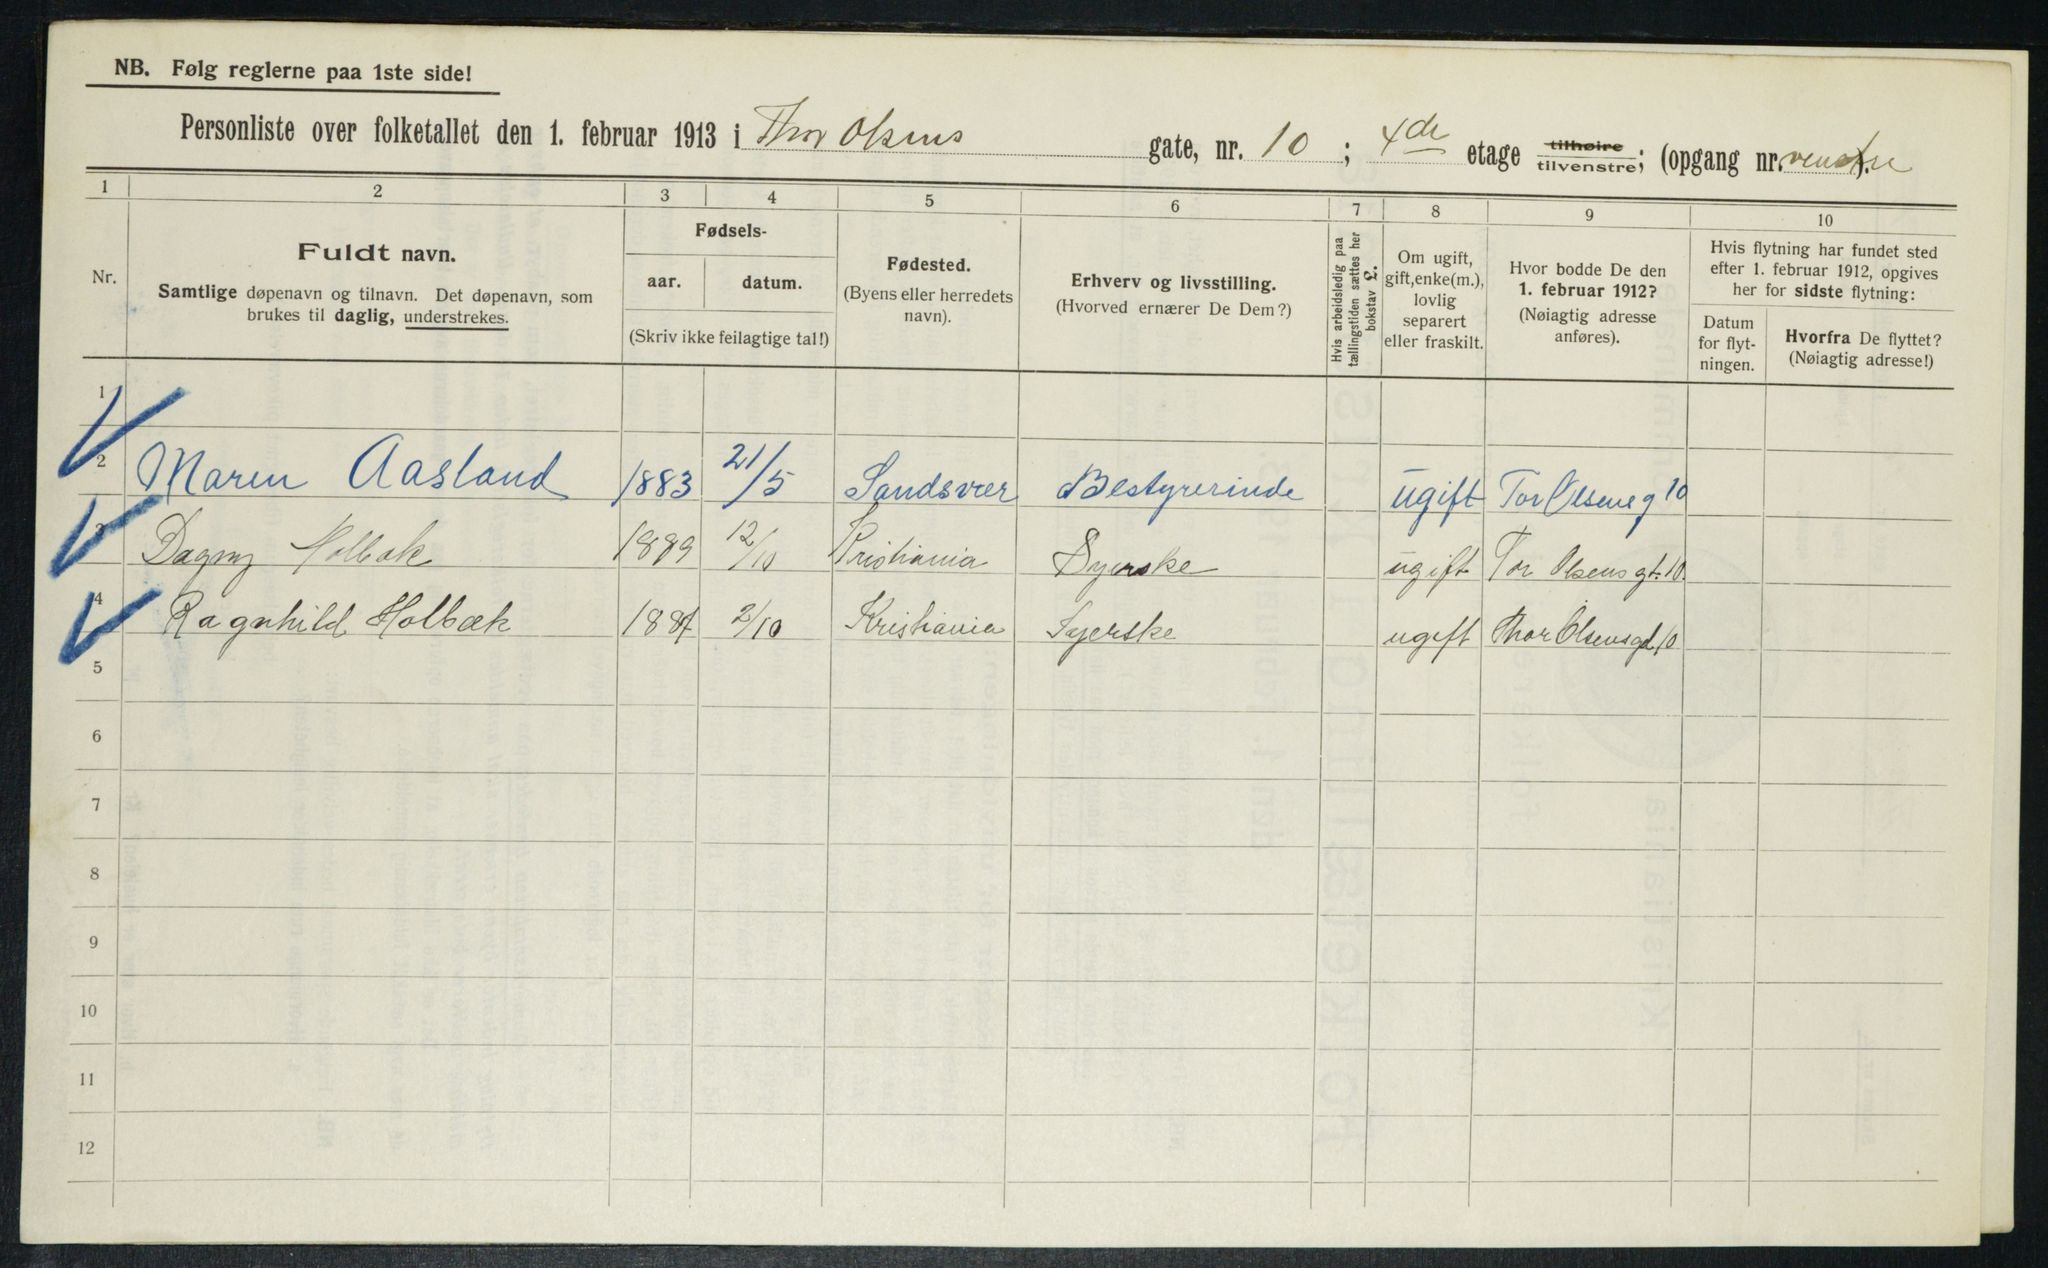 NB. Følg reglerne paa 1ste side!
Personliste over folketallet den 1. februar 1913 i Thor Olsens gate, nr. 10 ; 4de etage tilhøire tilvenstre; (opgang nr. venstre).
1 2 3 4 5 6 7 8 9 10
Nr.
Fuldt navn.
Samtlige døpenavn og tilnavn. Det døpenavn, som
brukes til daglig, understrekes.
Fødsels-
aar. datum.
(Skriv ikke feilagtige tal!)
Fødested.
(Byens eller herredets
navn).
Erhverv og livsstilling.
(Hvorved ernærer De Dem?)
Hvis arbeidsledig paa
tællingstiden sættes her
bokstav L.
Om ugift,
gift, enke(m.),
lovlig
separert
eller fraskilt.
Hvor bodde De den
1. februar 1912?
(Nøiagtig adresse
anføres).
Hvis flytning har fundet sted
efter 1. februar 1912, opgives
her for sidste flytning:
Datum
for flyt-
ningen.
Hvorfra De flyttet?
(Nøiagtig adresse!)
1
2 Maren Aasland 1883 21/5 Sandsvær Bestyrerinde ugift Tor Olsens g 10
3 Dagny Holbæk 1889 12/10 Kristiania Syerske ugift Tor Olsens gt. 10.
4 Ragnhild Holbæk 1887 2/10 Kristiania Syerske ugift Thor Olsensgd 10
5
6
7
8
9
10
11
12